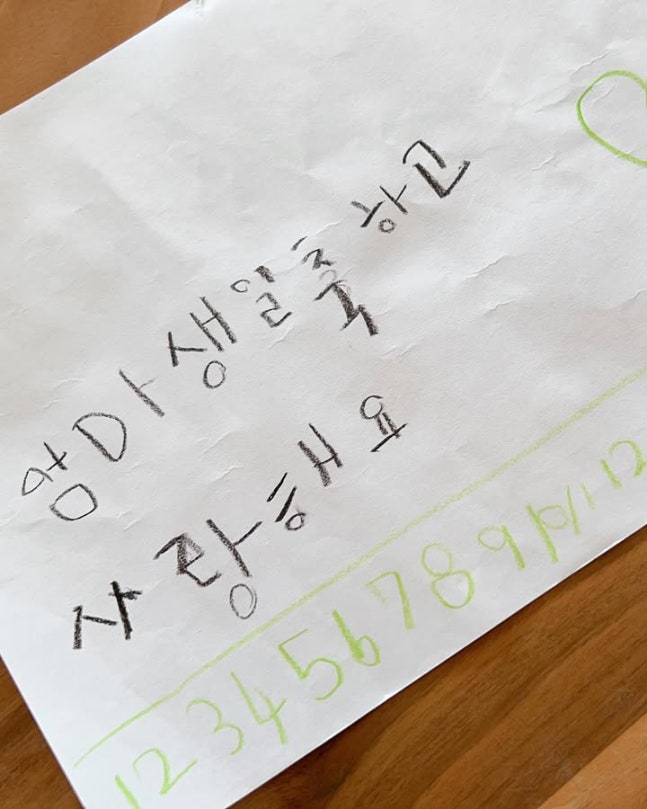 엄마 생일축하고
사랑해요
1 2 3 4 5 6 7 8 9 10 11 12